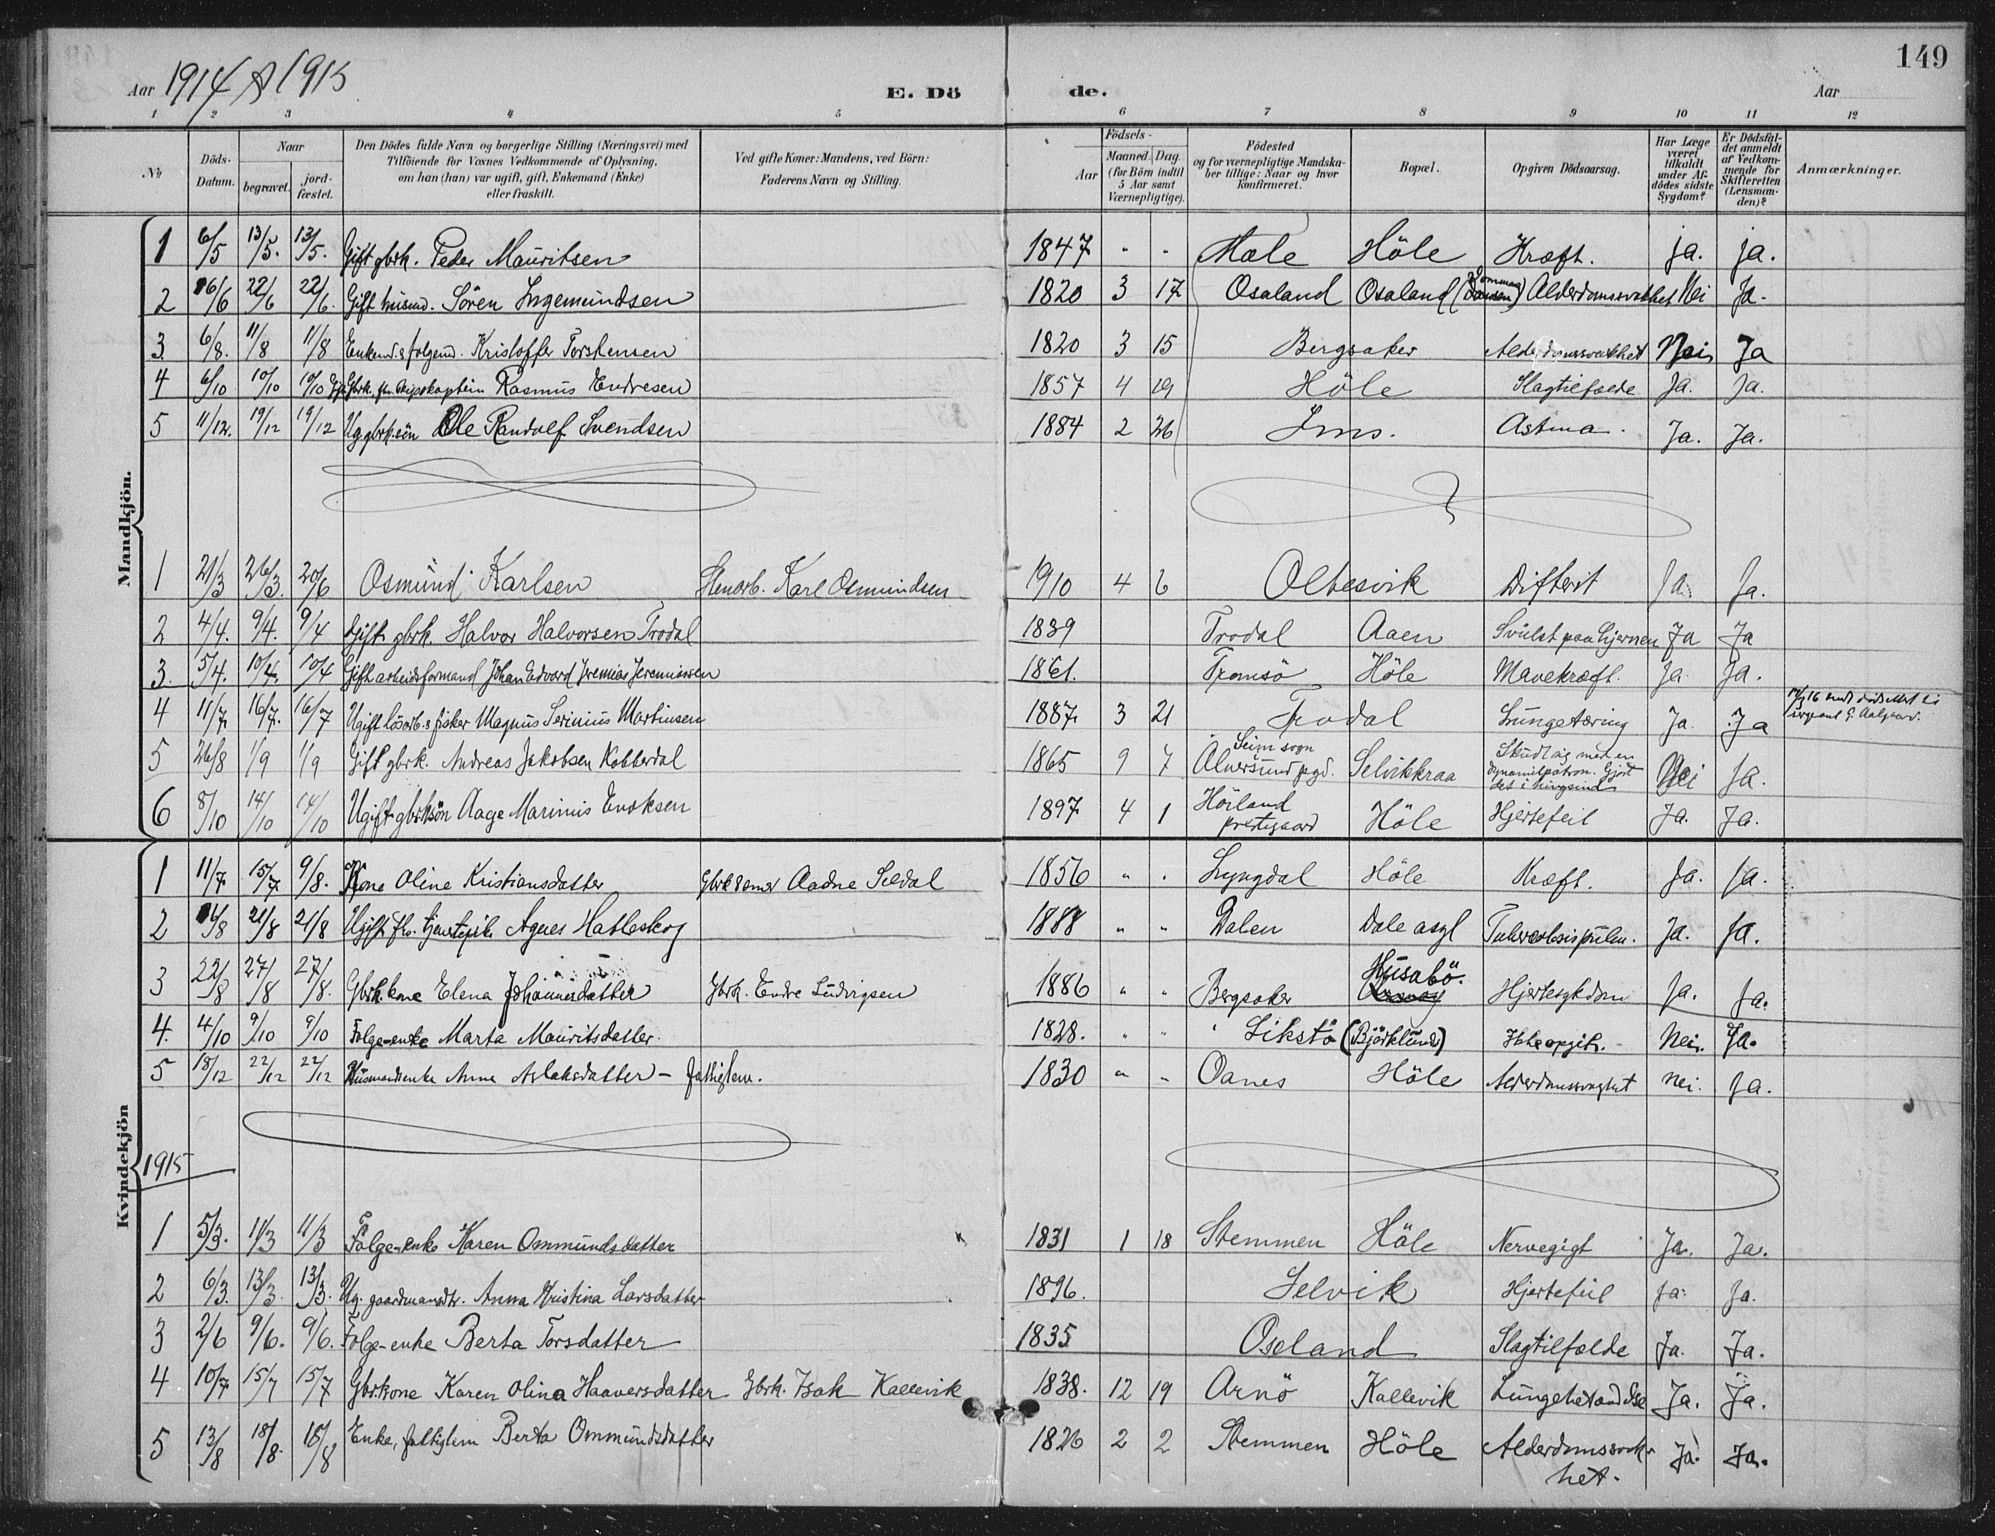 149
Aar 1914 & 1915 E. Dö de. Aar
1 2 3 4 5 6 7 8 9 10 11 12
№
Döds-Datum.
Naar
begravet.
jord-fæstet.
Den Dödes fulde Navn og borgerlige Stilling (Næringsvei) med
Tilföiende for Voxnes Vedkommende af Oplysning,
om han (hun) var ugift, gift, Enkemand (Enke)
eller fraskilt.
Ved gifte Koner: Mandens, ved Börn:
Faderens Navn og Stilling.
Födsels-
Aar
Maaned. Dag.
(for Börn indtil
5 Aar samt
Værnepligtige).
Födested
og for værnepligtige Mandska-
ber tillige: Naar og hvor
konfirmeret.
Bopæl.
Opgiven Dödsaarsag.
Har Læge
været
tilkaldt
under Af-
dödes sidste
Sygdom?
Er Dödsfal-
det anmeldt
af Vedkom-
mende for
Skifteretten
(Lensman-
den)?
Anmærkninger.
Mandkjön.
1 6/5 13/5. 13/5. Gift gbrk. Peder Mauritsen 1847 " " Mæle Höle Kræft. ja. ja.
2 16/6 22/6 22/6. Gift husmd. Sören Ingemundsen 1820 3 17 Osaland Osaland Alderdomssvakhet Nei Ja.
3. 6/8. 11/8 11/8 Enkemd. & folgemd. Kristoffer Torstensen 1820 3 15 Bergsaker Alderdomssvakhet Nei Ja
4 6/10 10/10 10/10 Gift Gbrk. fhv. skipskaptein Rasmus Endresen 1857 4 19 Höle Slagtilfælde Ja. Ja.
5 11/12. 19/12 19/12 Ug gbrk.sön Ole Randolf Svendsen 1884 2 26 Ims. Astma. Ja. Ja.
1 21/3 26/3. 20/6 Osmund Karlsen Stenarb. Karl Osmundsen 1910 4 6 Oltesvik Difterit Ja. Ja.
2 4/4. 9/4. 9/4 Gift gbrk. Halvor Halvorsen Trodal 1839 Trodal Aaen Svulst paa hjernen Ja Ja
3. 5/4. 10/4. 10/4 Gift arbeidsformand Johan Edvard Jeremias Jeremiassen 1861. Tromsö Höle Mavekræft. Ja. Ja.
4 11/7. 16/7. 16/7 Ugift lösarb. & fisker Magnus Serinius Martinsen 1887 3 21 Trodal Lungetæring Ja. Ja
5 26/8 1/9 1/9 Gift gbrk. Andreas Jakobsen Kobberdal 1865 9 7 Seim sogn Alversund pgd. Selvikkraa Skudt sig med en dynamitpatron. Gjort det i Nei Ja.
6 8/10 14/10 14/10 Ugift gbrksön Aage Marinus Enoksen 1897 4 1 Höiland prestgaard Höle Hjertefeil Ja. Ja.
Kvindekjön
1 11/7 15/7 9/8. Kone Oline Kristiansdatter Aadne Seldal 1856 " . Lyngdal Höle Kræft. Ja. Ja.
2 16/8 21/8 21/8 Ugift fhv. tjenstepike Agnes Hatleskog 1888 " " Dalen Dale asyl Tuberculosis pulm. Ja. Ja.
3 22/8 27/8 27/8. Gbrk.kone Elena Johannesdatter Gbrk. Endre Ludvigsen 1886 " " Bergsaker Husabö. Hjertesykdom Ja. Ja.
4. 4/10 9/10 9/10 Folge-enke Marta Mauritsdatter. 1828. " " Likstö (Björklund) Ikke opgit. Nei. Ja.
5 18/12 22/12 22/12 Husmandsenke Anna Aslaksdatter – fattiglem. 1830 " " Oanes Höle Alderdomssvaghet Nei. Ja.
1915
1 5/3. 11/3 11/3 Folge-enke Karen Ommundsdatter 1831 1 18 Stemmen Höle Nervegigt Ja. Ja.
2 6/3. 13/3. 13/3. Ug. gaardmandsdtr. Anna Kristina Larsdatter 1896. Selvik Hjertefeil Ja. Ja.
3 2/6 9/6. 9/6. Folge-enke Berta Torsdatter 1835 Oseland Slagtilfælde Ja. Ja.
4 10/7 15/7 15/7 Gbrkone Karen Olina Haaversdatter Gbrk. Isak Kallevik 1838. 12 19 Arnö Kallevik Lungebetændelse Ja. Ja.
5 13/8 18/8. 18/8 Enke, fattiglem Berta Ommundsdatter 1826 2 2 Stemmen Höle Alderdomssvak-
het. Ja. Ja.